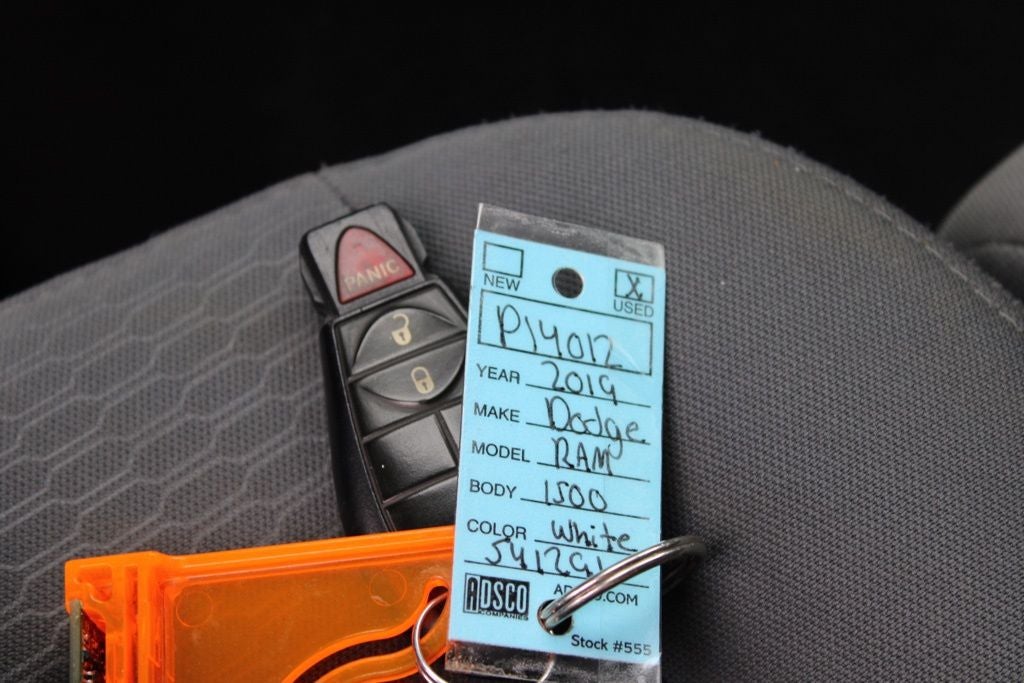 PANIC
NEW
X
USED
P14012
YEAR 2019
MAKE Dodge
MODEL RAM
BODY 1500
COLOR White
541291
ADSCO
COMPANIES
ADSCO.COM
Stock #555